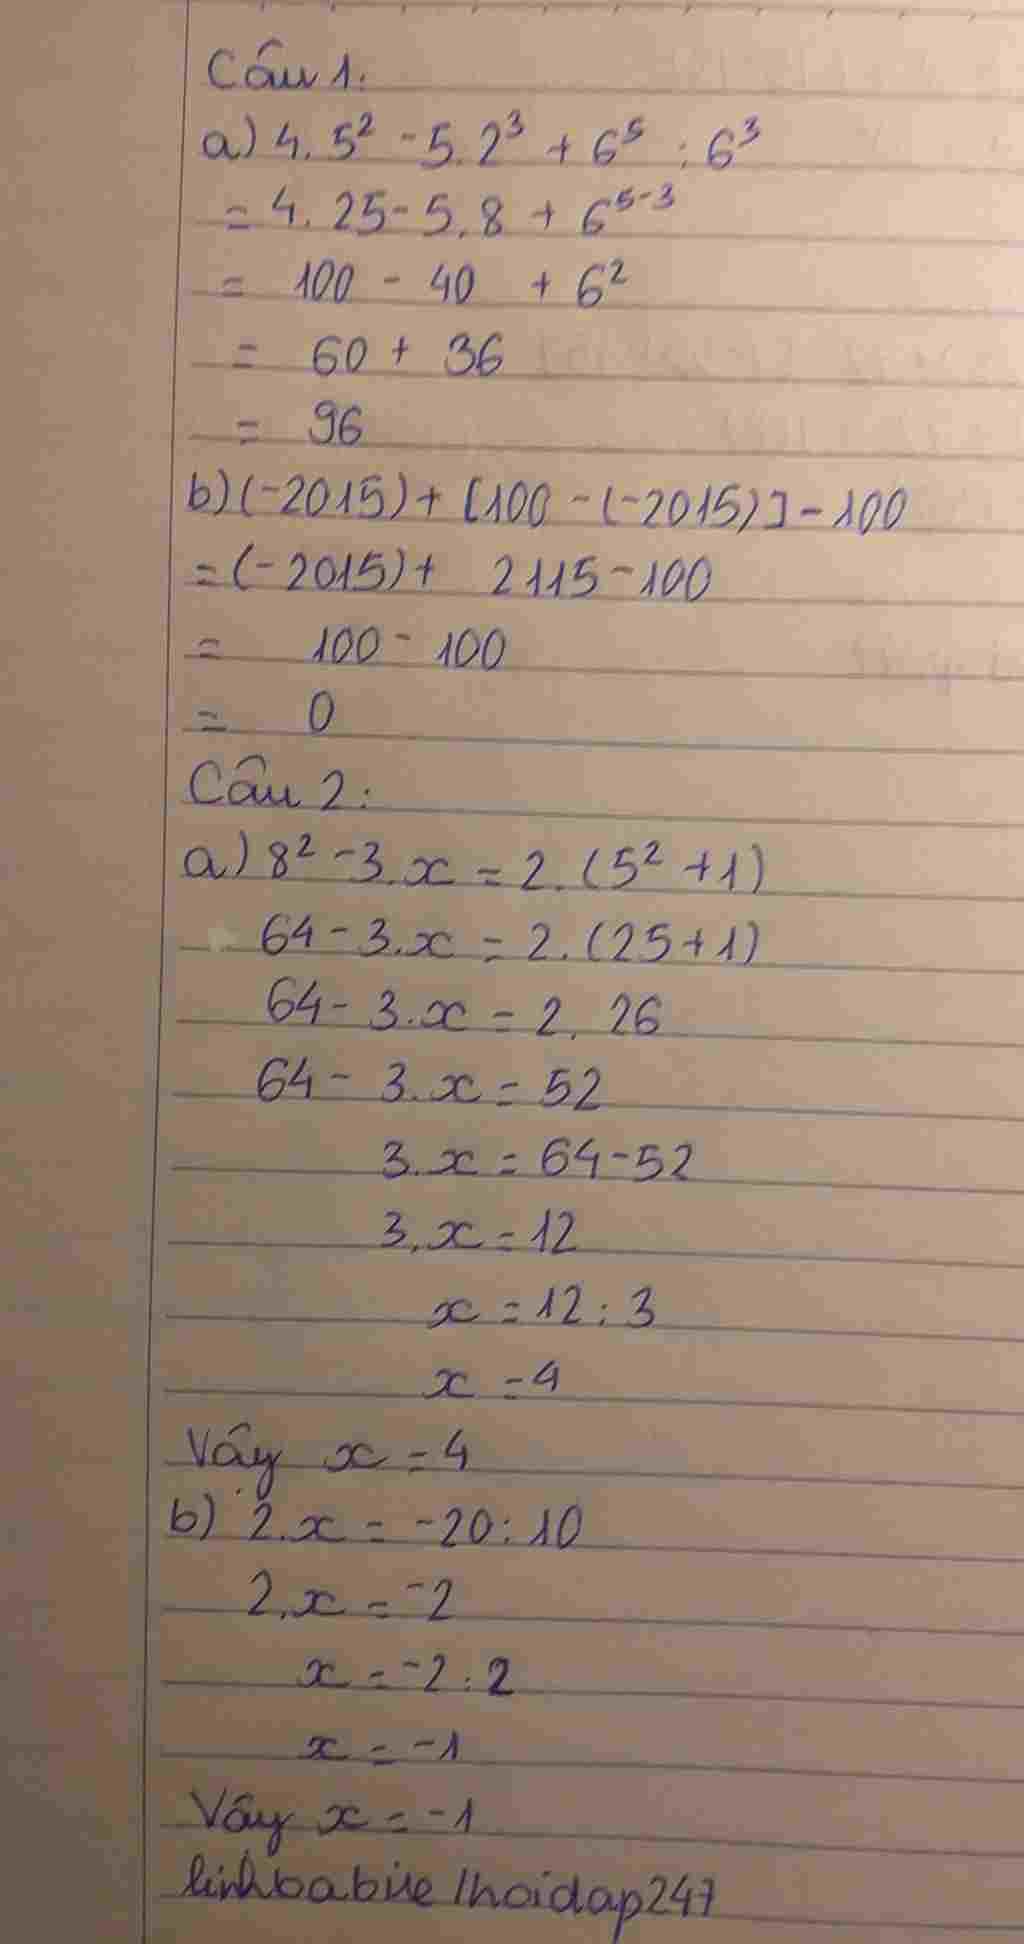 Câu 1:
a) 4. 5² - 5. 2³ + 6⁵ : 6³
= 4. 25 - 5. 8 + 6⁵⁻³
= 100 - 40 + 6²
= 60 + 36
= 96
b) (-2015) + [100 - (-2015)] - 100
= (-2015) + 2115 - 100
= 100 - 100
= 0
Câu 2:
a) 8² - 3.x = 2. (5² + 1)
64 - 3.x = 2. (25 + 1)
64 - 3.x = 2. 26
64 - 3.x = 52
3.x = 64 - 52
3.x = 12
x = 12 : 3
x = 4
Vậy x = 4
b) 2.x = -20 : 10
2.x = -2
x = -2 : 2
x = -1
Vậy x = -1